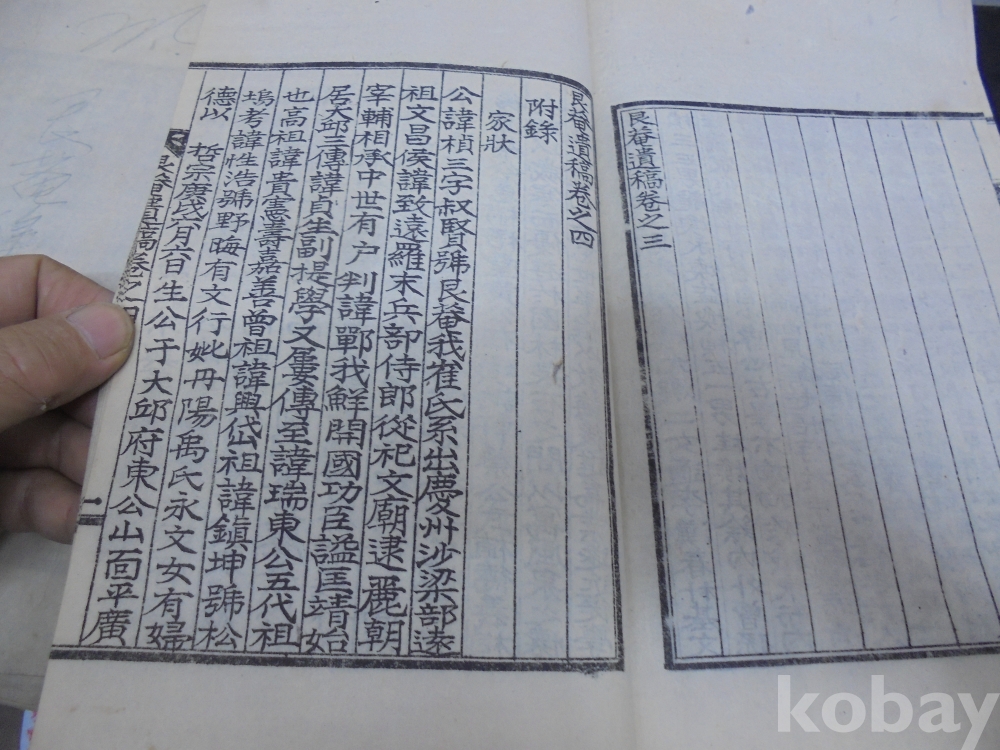 艮菴遺稿卷之三
艮菴遺稿卷之四
附錄
家狀
公諱楨三字叔賢號艮菴我崔氏系出慶州沙梁部遠
祖文昌侯諱致遠羅末兵部侍郎從祀文廟逮麗朝
宰輔相承中世有户判諱鄲我鮮開國功臣謚匡靖始
居大邱三傳諱貞生副提學又屢傳至諱瑞東公五代祖
也高祖諱貴憲壽嘉善曾祖諱興岱祖諱鎮坤號松
塢考諱性浩號野晦有文行妣丹陽禹氏永文女有婦
德以 哲宗庚戌 月六日生公于大邱府東公山面平廣
艮菴遺稿卷之四 一
kobay